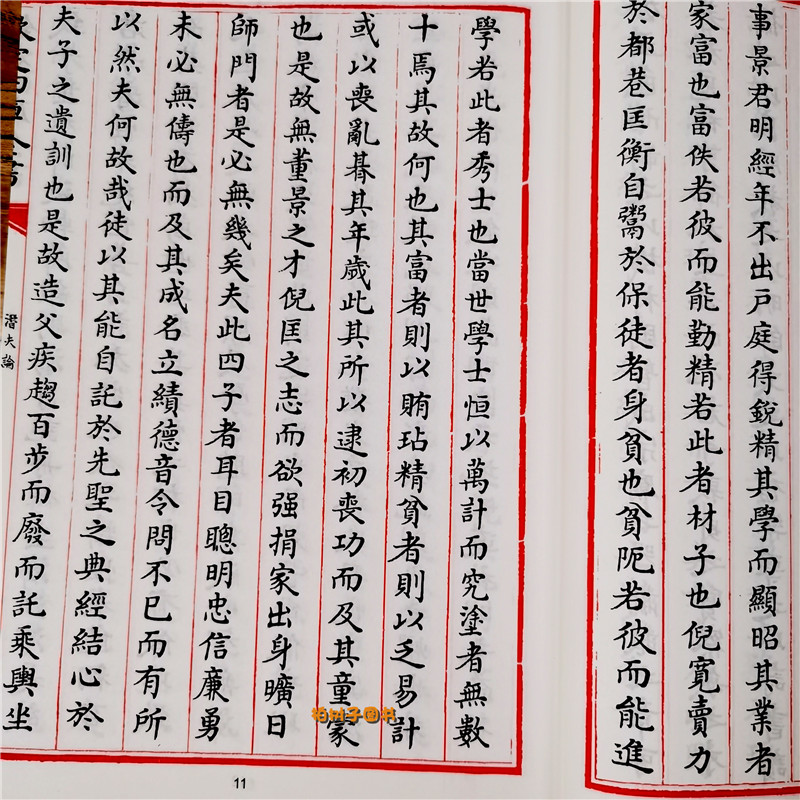 事景君明經年不出戶庭得銳精其學而顯昭其業者
家富也富佚若彼而能勤精若此者材子也倪寬賣力
於都巷匡衡自鬻於保徒者身貧也貧阨若彼而能進
學若此者秀士也當世學士恒以萬計而究塗者無數
十焉其故何也其富者則以賄玷精貧者則以乏易計
或以喪亂朞其年歲此其所以逮初喪功而及其童蒙
也是故無董景之才倪匡之志而欲强捐家出身曠日
師門者是必無幾矣夫此四子者耳目聰明忠信廉勇
未必無儔也而及其成名立績德音令問不已而有所
以然夫何故哉徒以其能自託於先聖之典經結心於
夫子之遺訓也是故造父疾趨百步而廢而託乘輿坐
潛夫論
11